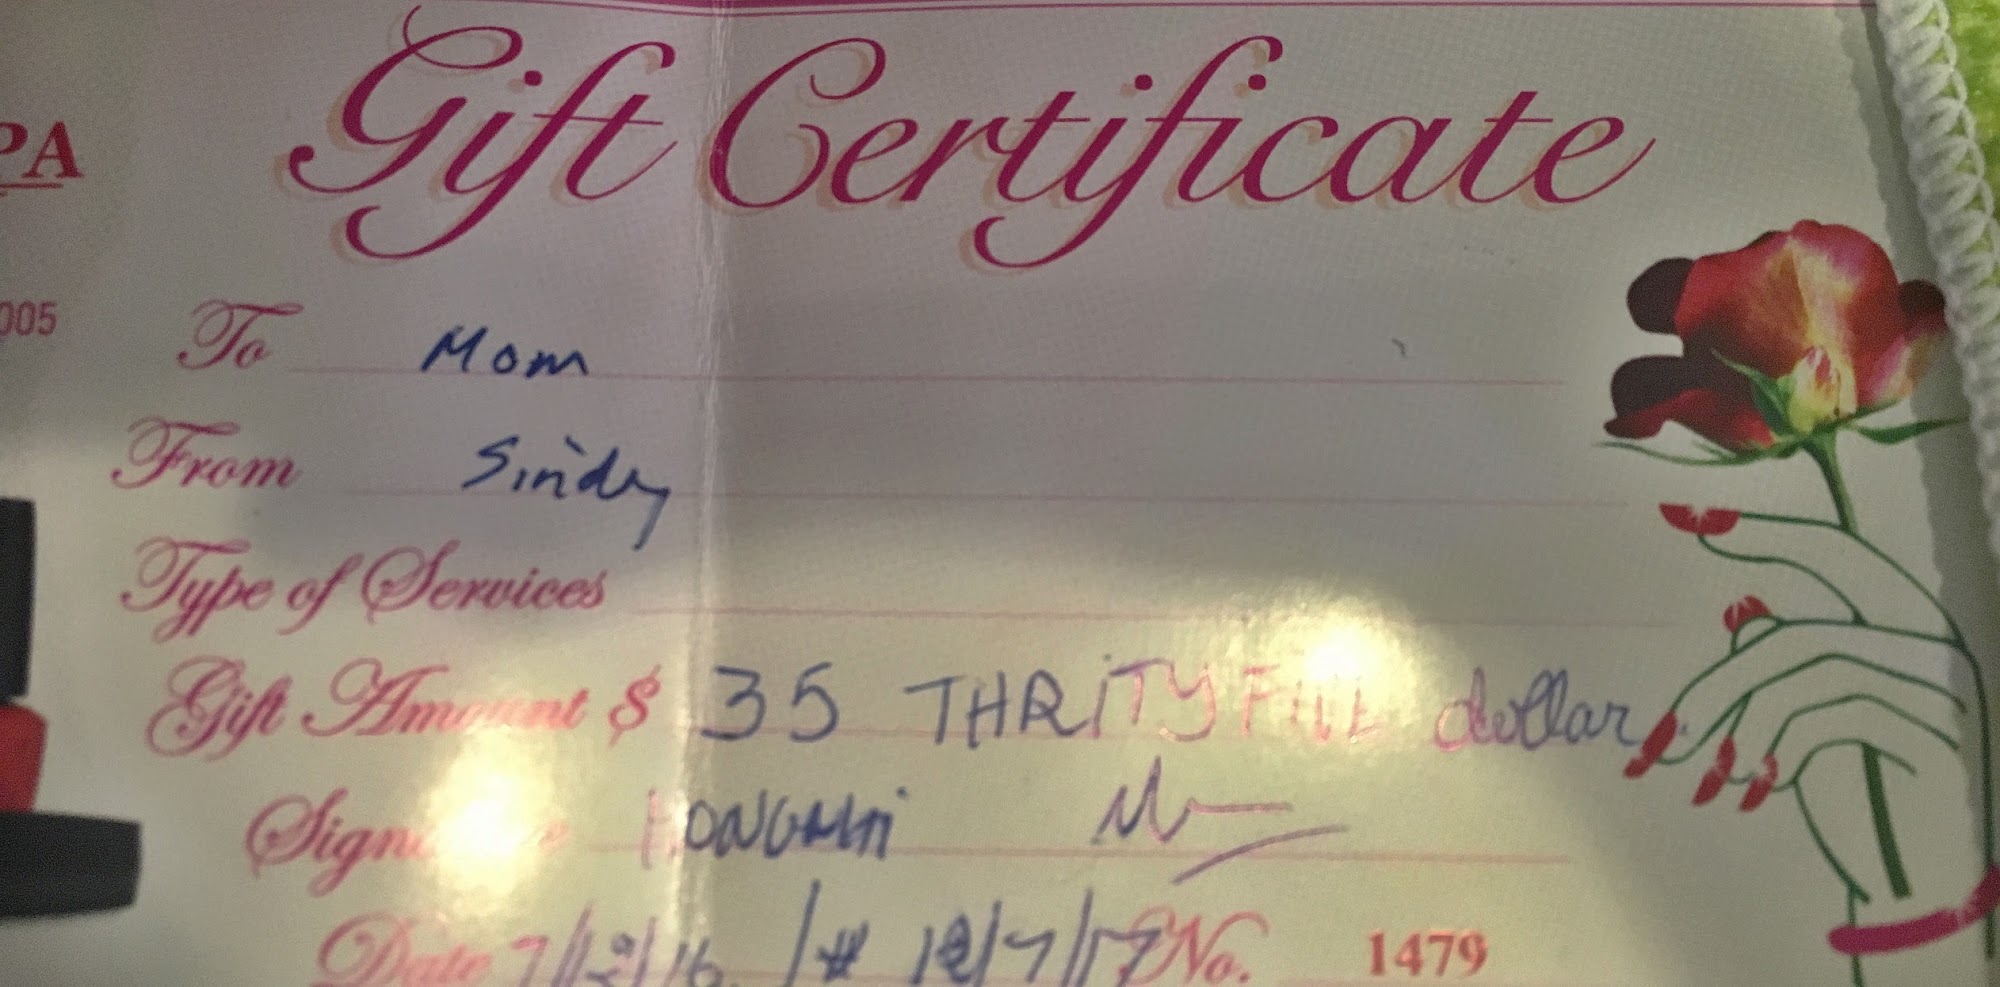 Gift Certificate
PA
005
To Mom
From Sindy
Type of Services
Gift Amount $ 35 THRITY FIVE dollar
Signature
Date 7/12/16 12/7/17 No. 1479